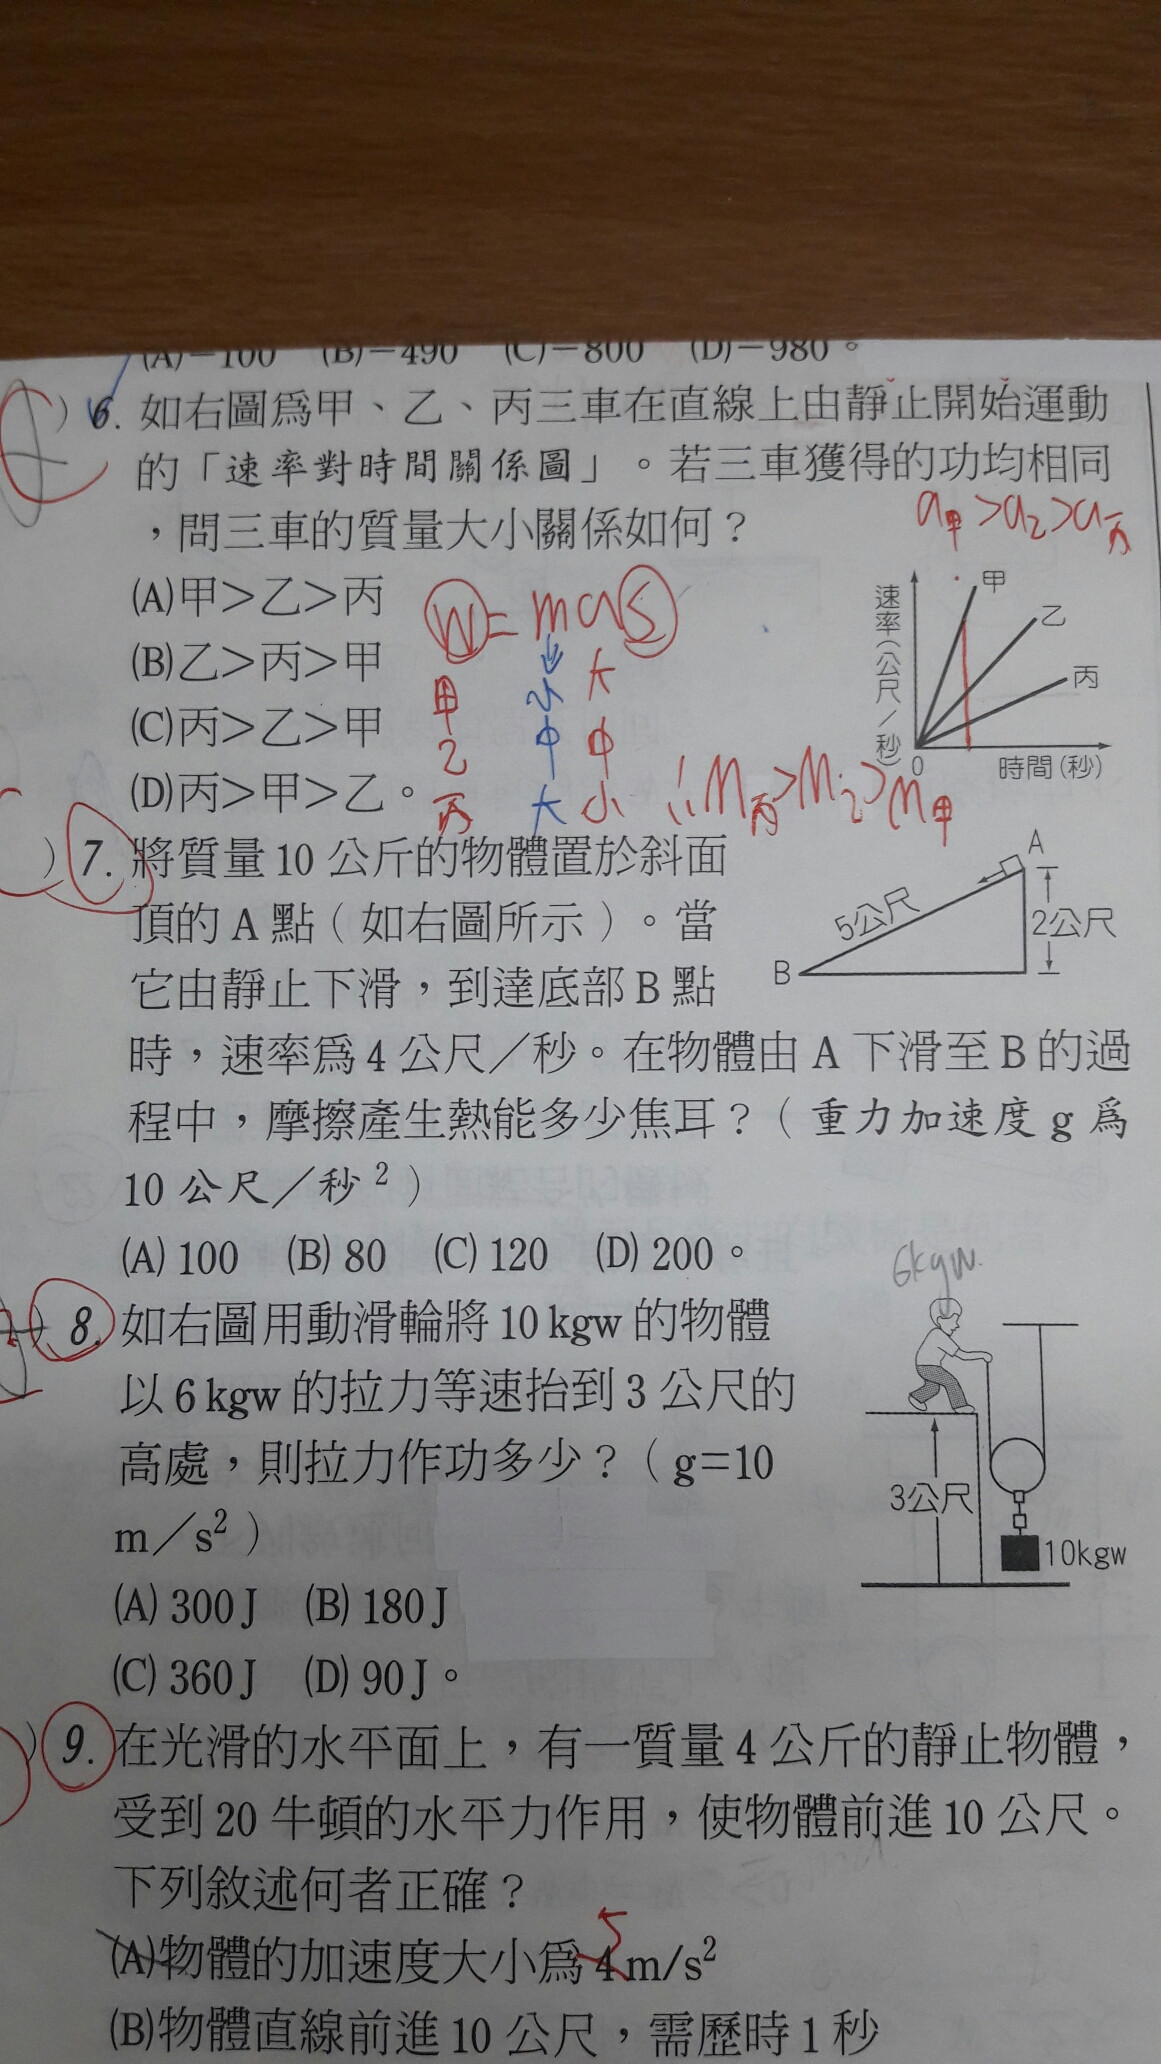 (A)－100 (B)－490 (C)－800 (D)－980。
)6. 如右圖爲甲、乙、丙三車在直線上由靜止開始運動
的「速率對時間關係圖」。若三車獲得的功均相同
，問三車的質量大小關係如何？
a甲>a乙>a丙
(A)甲＞乙＞丙
(B)乙＞丙＞甲
(C)丙＞乙＞甲
(D)丙＞甲＞乙。
W=maS
甲 小 大
乙 中 中
丙 大 小
∴M丙>M乙>M甲
速率(公尺／秒)
甲
乙
丙
0
時間(秒)
)7. 將質量 10 公斤的物體置於斜面
頂的 A 點（如右圖所示）。當
它由靜止下滑，到達底部 B 點
時，速率爲 4 公尺／秒。在物體由 A 下滑至 B 的過
程中，摩擦產生熱能多少焦耳？（重力加速度 g 爲
10 公尺／秒²）
(A) 100 (B) 80 (C) 120 (D) 200。
A
5公尺
2公尺
B
)8. 如右圖用動滑輪將 10 kgw 的物體
以 6 kgw 的拉力等速抬到 3 公尺的
高處，則拉力作功多少？（g=10
m／s²）
(A) 300 J (B) 180 J
(C) 360 J (D) 90 J。
6kgw.
3公尺
10kgw
)9. 在光滑的水平面上，有一質量 4 公斤的靜止物體，
受到 20 牛頓的水平力作用，使物體前進 10 公尺。
下列敘述何者正確？
5
(A)物體的加速度大小爲 4 m/s²
(B)物體直線前進 10 公尺，需歷時 1 秒